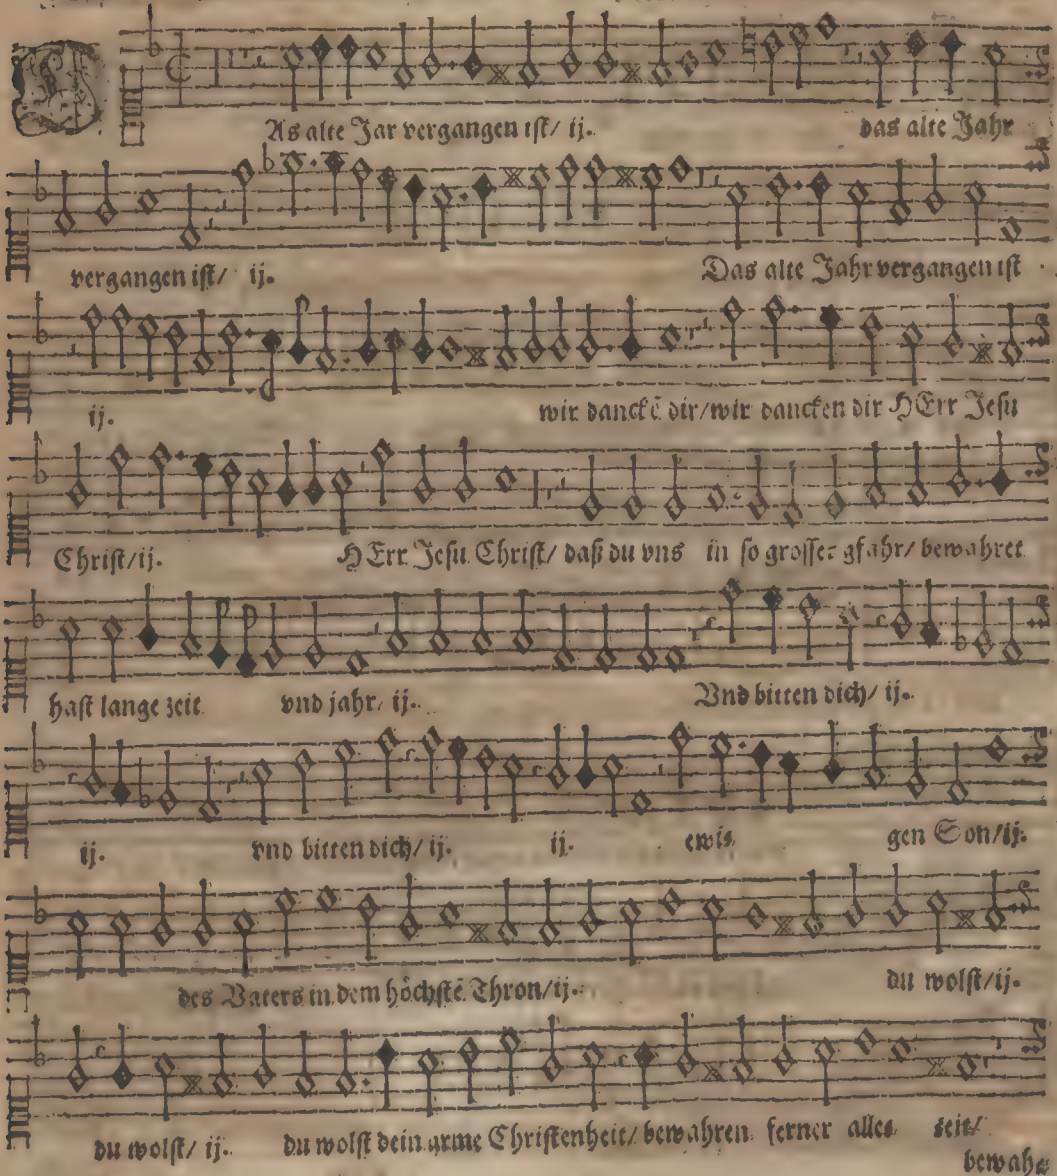 DAs alte Jar vergangen ist/ ij. das alte Jahr
vergangen ist/ ij. Das alte Jahr vergangen ist
ij. wir danckē dir/wir dancken dir HErr Jesu
Christ/ij. HErr Jesu Christ/ daß du vns in so grosser gfahr/ bewahret
hast lange zeit vnd jahr/ ij. Vnd bitten dich/ ij.
ij. vnd bitten dich/ ij. ij. ewi- gen Son/ij.
des Vaters in dem höchstē Thron/ij. du wolst/ij.
du wolst/ ij. du wolst dein arme Christenheit/ bewahren ferner alle zeit/
bewah-